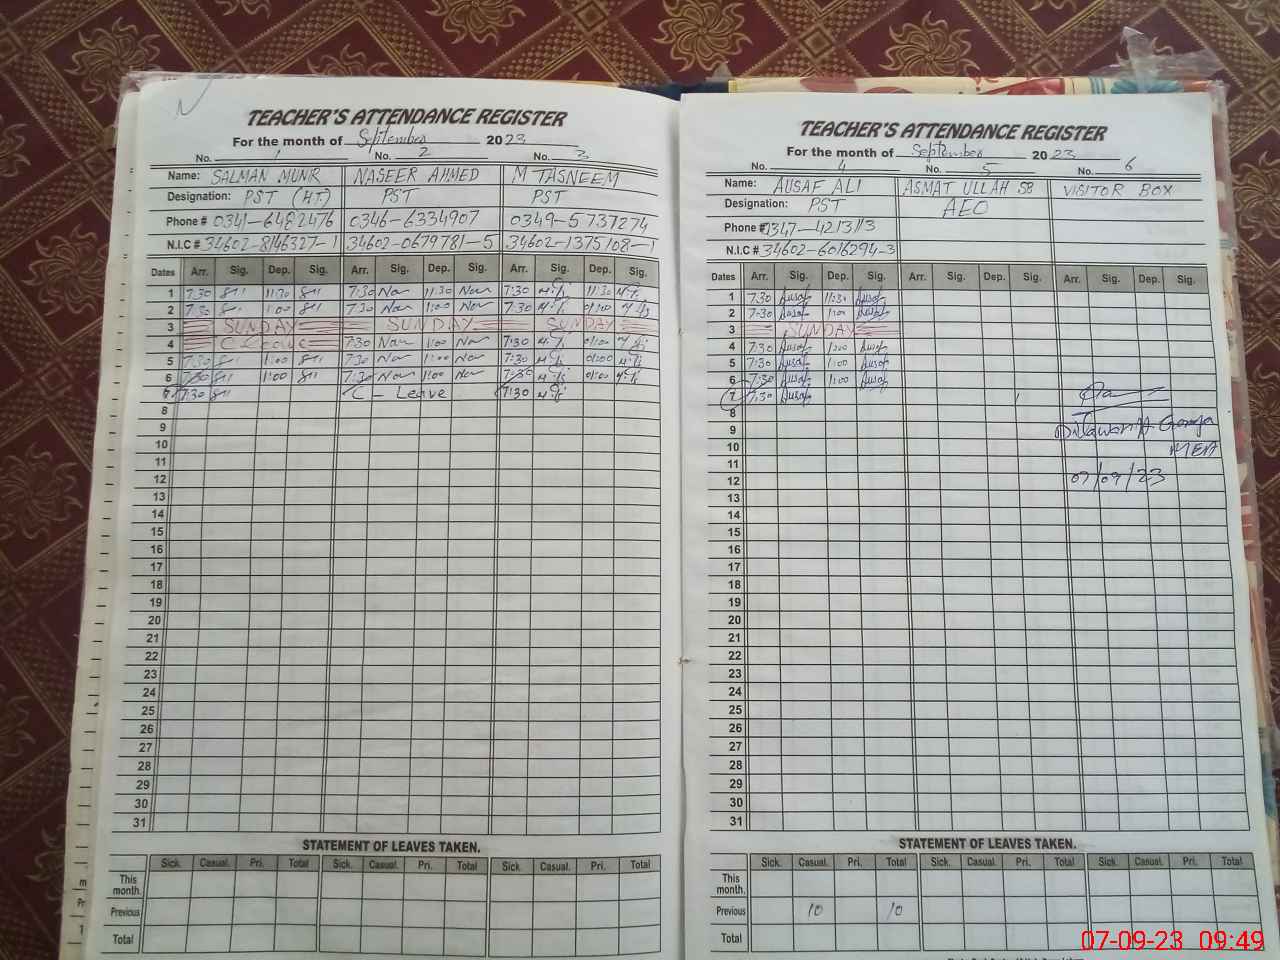 TEACHER'S ATTENDANCE REGISTER
For the month of September 2023
No. 1 No. 2 No. 3
Name: SALMAN MUNR NASEER AHMED M TASNEEM
Designation: PST (H.T.) PST PST
Phone # 0341-6482476 0346-6334907 0349-5737274
N.I.C # 34602-8146327-1 34602-0679781-5 34602-1375108-1
Dates Arr. Sig. Dep. Sig. Arr. Sig. Dep. Sig. Arr. Sig. Dep. Sig.
1 7:30 11:30 7:30 Nar 11:30 Nar 7:30 11:30
2 7:30 1:00 7:30 Nar 1:00 Nar 7:30 01:00
3 SUNDAY SUNDAY SUNDAY
4 C Leave 7:30 Nar 1:00 Nar 7:30 01:00
5 7:30 1:00 7:30 Nar 1:00 Nar 7:30 01:00
6 7:30 1:00 7:30 Nar 1:00 Nar 7:30 01:00
7 7:30 C - Leave 7:30
8
9
10
11
12
13
14
15
16
17
18
19
20
21
22
23
24
25
26
27
28
29
30
31
STATEMENT OF LEAVES TAKEN.
Sick. Casual. Pri. Total Sick. Casual. Pri. Total Sick. Casual. Pri. Total
This month.
Previous
Total
TEACHER'S ATTENDANCE REGISTER
For the month of September 2023
No. 4 No. 5 No. 6
Name: AUSAF ALI ASMAT ULLAH SB VISITOR BOX
Designation: PST AEO
Phone # 0347-4213113
N.I.C # 34602-6016294-3
Dates Arr. Sig. Dep. Sig. Arr. Sig. Dep. Sig. Arr. Sig. Dep. Sig.
1 7:30 Ausaf 11:30 Ausaf
2 7:30 Ausaf 1:00 Ausaf
3 SUNDAY
4 7:30 Ausaf 1:00 Ausaf
5 7:30 Ausaf 1:00 Ausaf
6 7:30 Ausaf 1:00 Ausaf
7 7:30 Ausaf
8
9
10 MEA
11
12 07/09/23
13
14
15
16
17
18
19
20
21
22
23
24
25
26
27
28
29
30
31
STATEMENT OF LEAVES TAKEN.
Sick. Casual. Pri. Total Sick. Casual. Pri. Total Sick. Casual. Pri. Total
This month.
Previous 10 10
Total
07-09-23 09:49